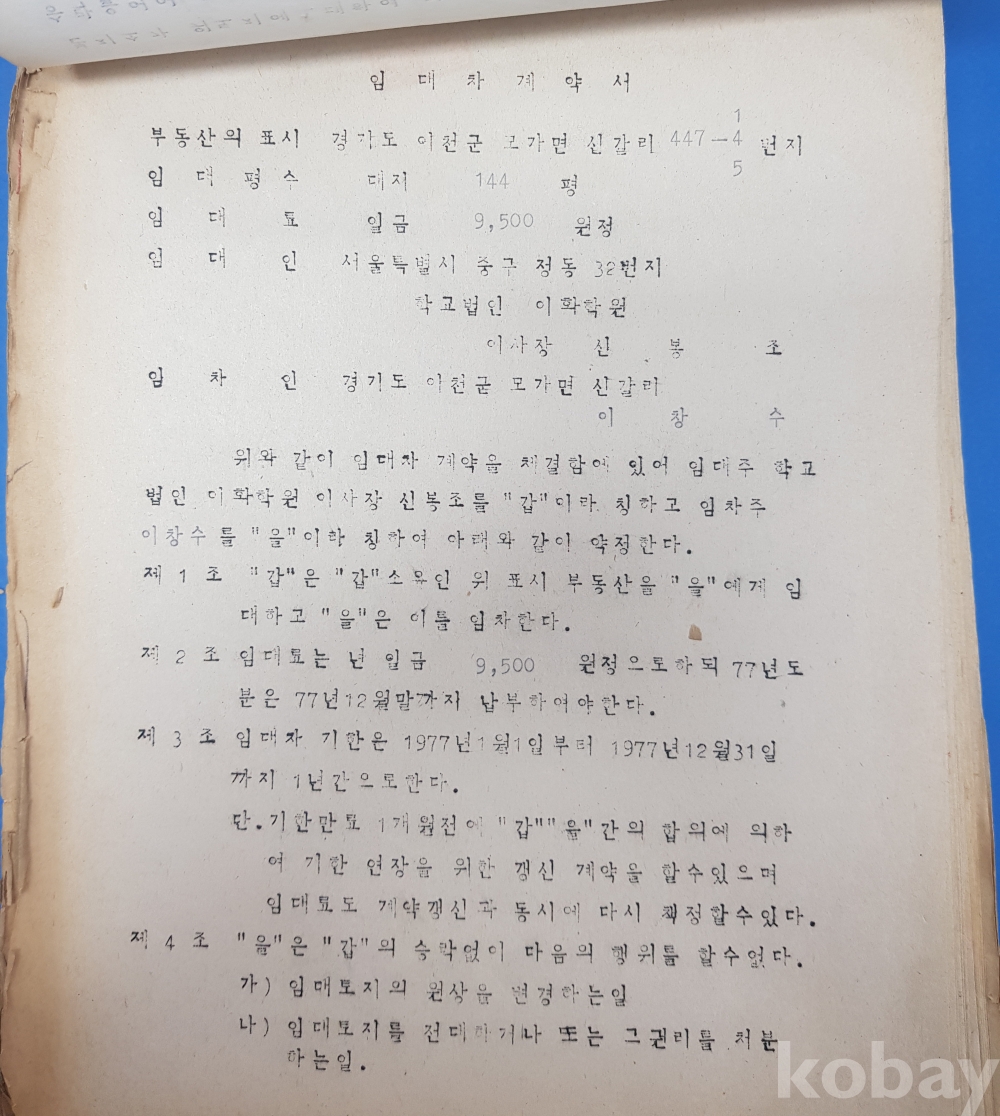 임 대 차 계 약 서
1
부동산의 표시 경기도 이천군 모가면 신갈리 447-4 번지
5
임 대 평 수 대지 144 평
임 대 료 일금 9,500 원정
임 대 인 서울특별시 중구 정동 32번지
학교법인 이화학원
이사장 신 봉 조
임 차 인 경기도 이천군 모가면 신갈리
이 창 수
위와 같이 임대차 계약을 체결함에 있어 임대주 학교
법인 이화학원 이사장 신봉조를 "갑"이라 칭하고 임차주
이창수를 "을"이하 칭하여 아래와 같이 약정한다.
제 1 조 "갑"은 "갑"소유인 위 표시 부동산을 "을"에게 임
대하고 "을"은 이를 임차한다.
제 2 조 임대료는 년 일금 9,500 원정으로하되 77년도
분은 77년12월말까지 납부하여야한다.
제 3 조 임대차 기한은 1977년1월1일부터 1977년12월31일
까지 1년간으로한다.
단.기한만료 1개월전에 "갑""을"간의 합의에 의하
여 기한 연장을 위한 갱신 계약을 할수있으며
임대료도 계약갱신과 동시에 다시 책정할수있다.
제 4 조 "을"은 "갑"의 승락없이 다음의 행위를 할수없다.
가) 임대토지의 원상을 변경하는일
나) 임대토지를 전대하거나 또는 그권리를 처분
하는일.
kobay